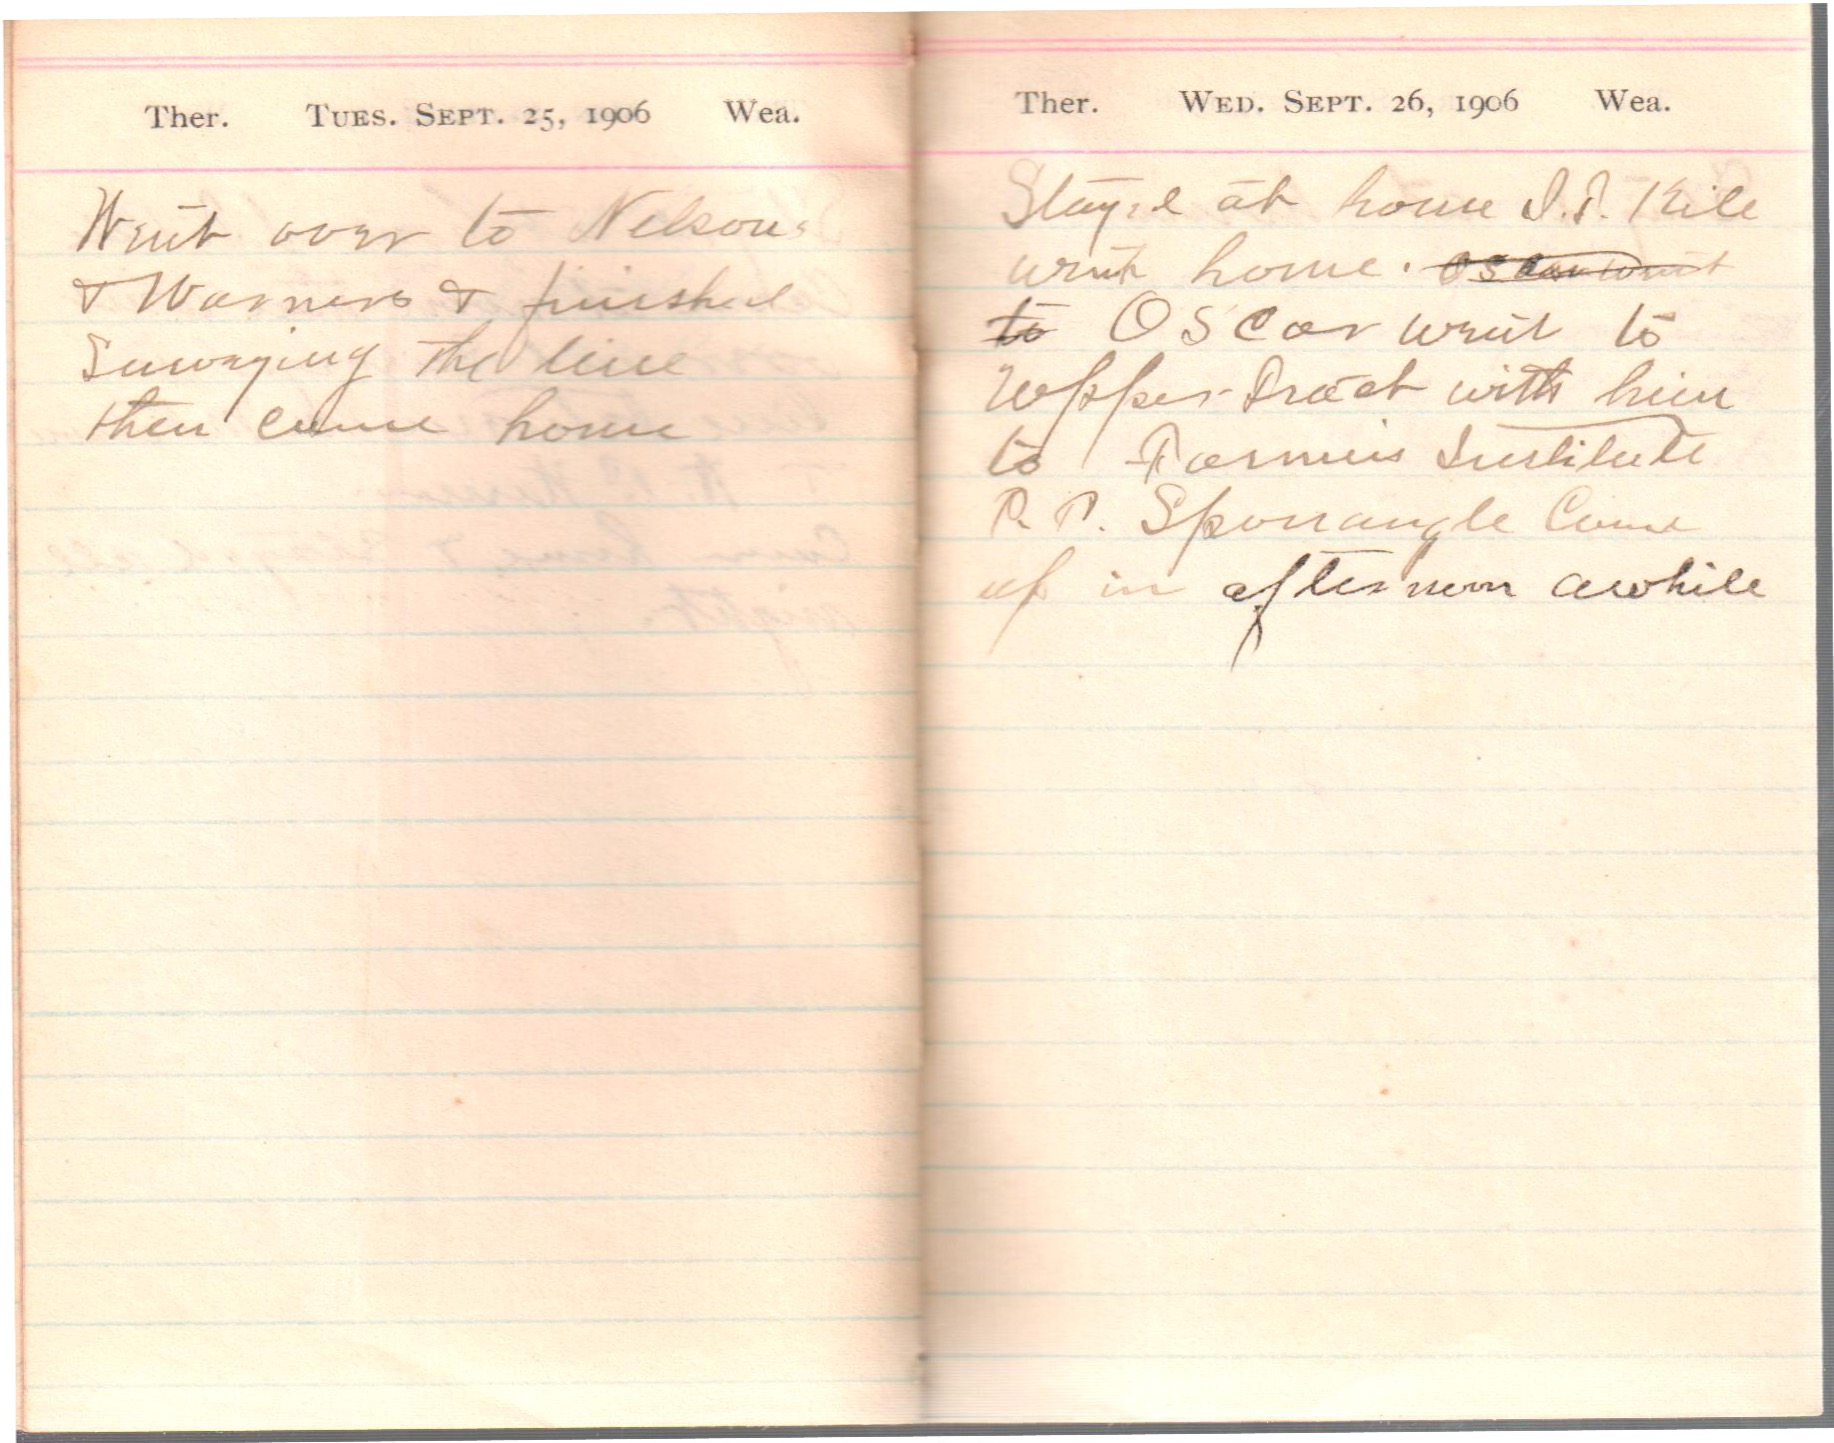 Ther. Tues. Sept. 25, 1906 Wea.
Went over to Nelsons
& Warners & finished
Surveying the line
then came home
Ther. Wed. Sept. 26, 1906 Wea.
Stayed at home Kile
went home. Oscar went
to Oscar went to
Upper Tract with him
to Farmers Institute
P. P. Sponaugle Came
up in afternoon awhile